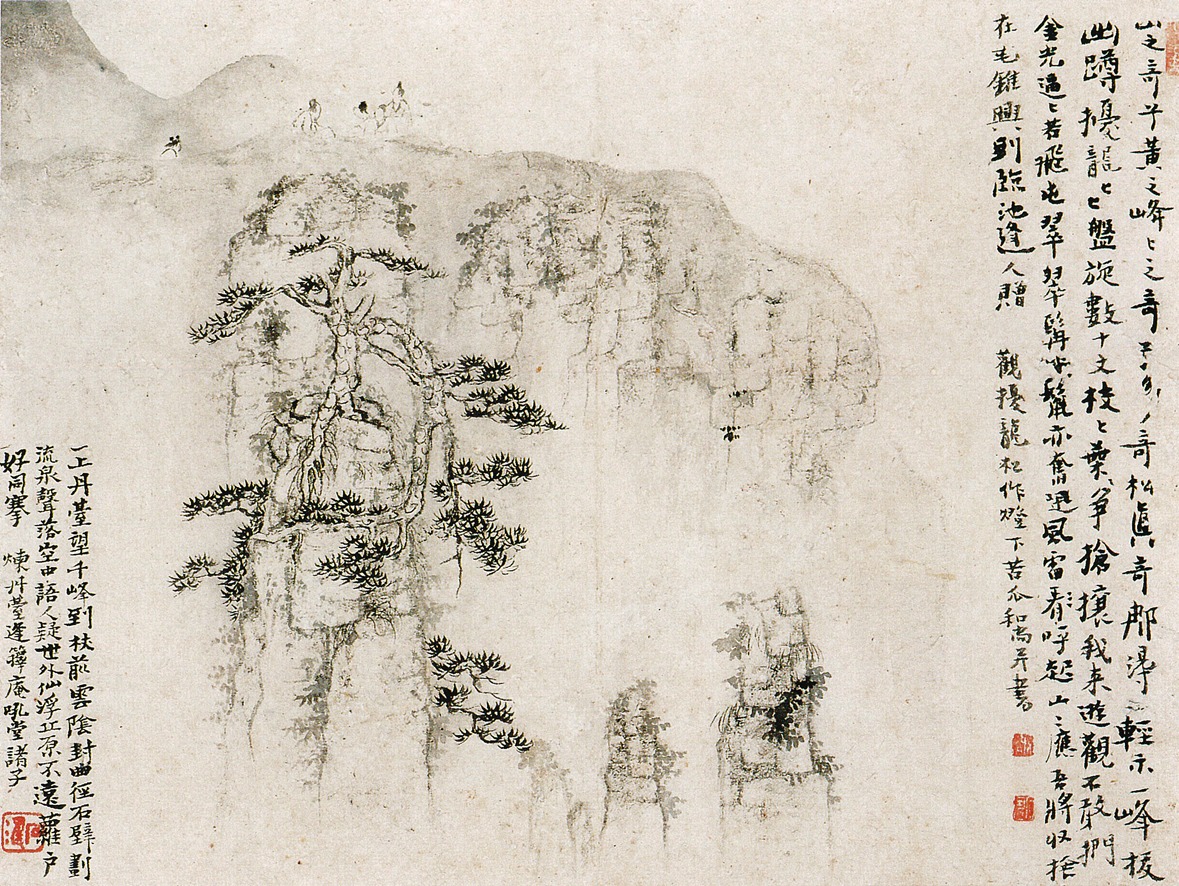 山之奇兮黃之峰〻之奇兮奇松真奇那得輕示一峰拔
幽蹲擾龍〻〻盤旋數十丈枝〻葉〻爭搶攘我來遊觀不敢捫
金光遍〻若飛屯翠翠鬣亦奮迅風雷看呼起山〻應吾將收拾
在毛錐興到臨池逢人贈 觀擾龍松作燈下苦瓜和尚并書
一上丹臺望千峰到杖前雲陰封曲徑石壁劃
流泉聲落空中語人疑世外仙浮丘原不遠蘿戶
好同搴 煉丹臺逢籜庵吼堂諸子